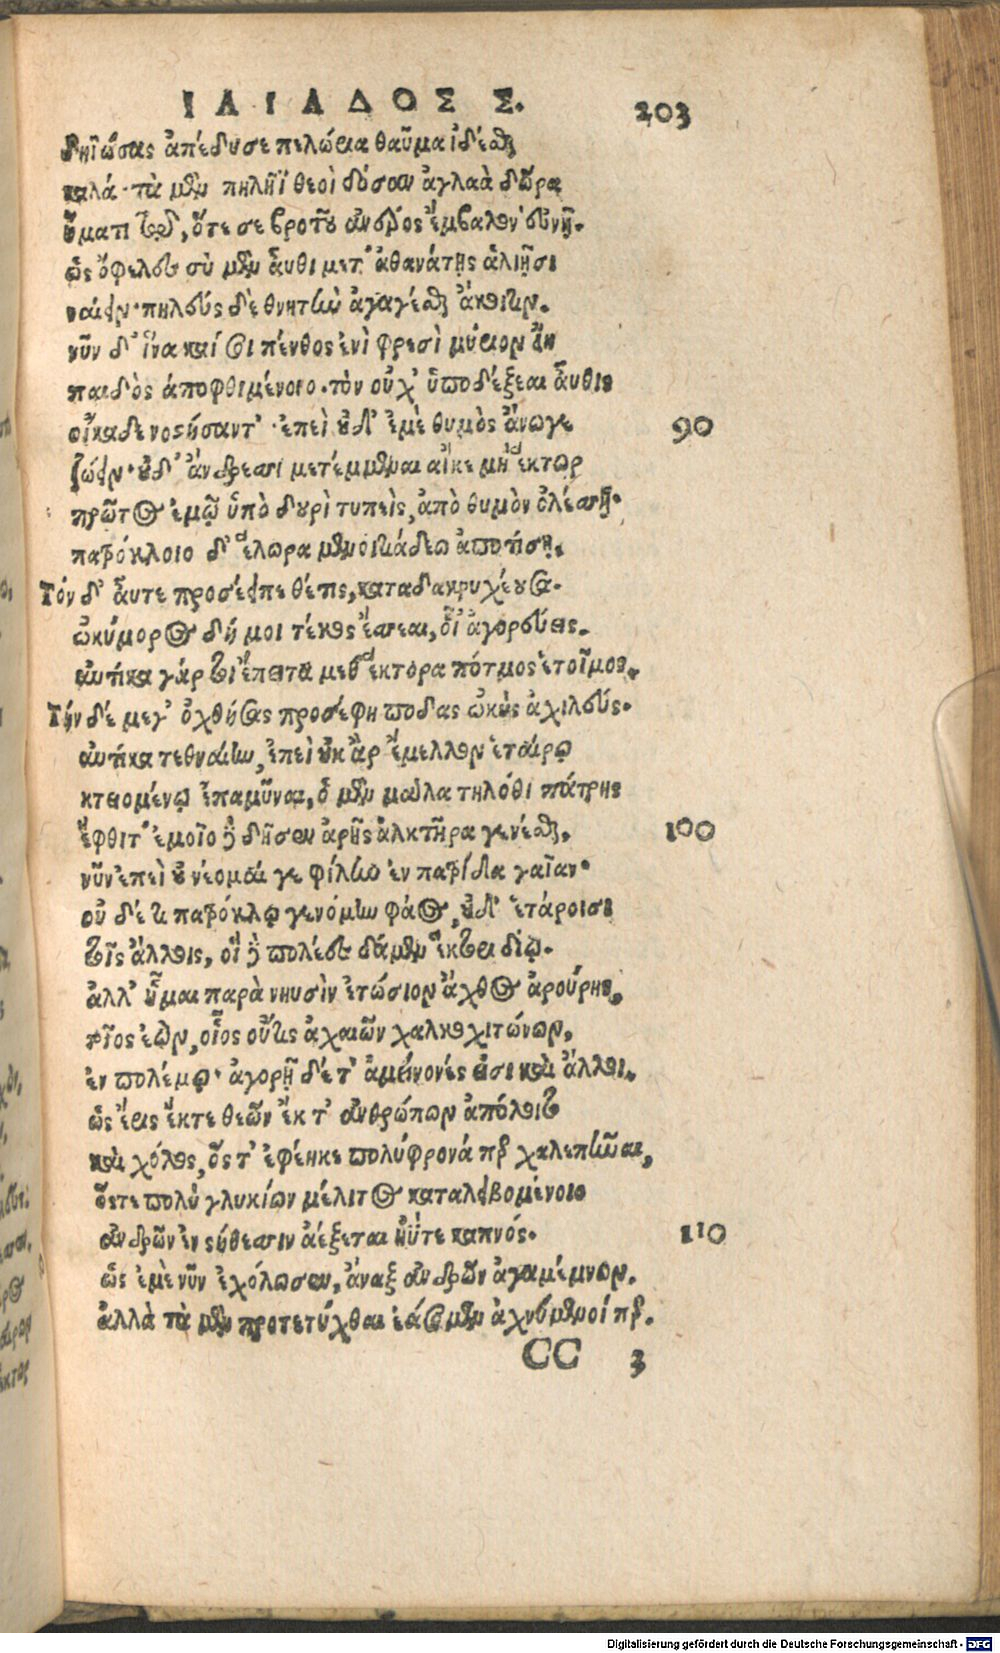 ΙΛΙΑΔΟΣ Σ. 203
δηϊώσας ἀπέδυσε πελώρια θαῦμα ἰδέσθαι
καλά· τὰ μὲν πηλῆϊ θεοὶ δόσαν ἀγλαὰ δῶρα
ἤματι τῷ, ὅτε σε βροτοῦ ἀνέρος ἔμβαλον εὐνῇ.
ὡς ὄφελες σὺ μὲν αὖθι μετ' ἀθανάτῃς ἁλίῃσι
ναίειν· πηλεὺς δὲ θνητὴν ἀγαγέσθαι ἄκοιτιν.
νῦν δ' ἵνα καί σοι πένθος ἐνὶ φρεσὶ μύριον εἴη
παιδὸς ἀποφθιμένοιο· τὸν οὐχ' ὑποδέξεαι αὖθις
οἴκαδε νοστήσαντ'· ἐπεὶ οὐδ' ἐμὲ θυμὸς ἄνωγε 90
ζώειν· οὐδ' ἄνδρεσσι μετέμμεναι αἴκε μὴ ἕκτωρ
πρῶτος ἐμῷ ὑπὸ δουρὶ τυπεὶς, ἀπὸ θυμὸν ὀλέσσῃ.
πατρόκλοιο δ' ἕλωρα μενοιτιάδεω ἀποτίσῃ.
Τὸν δ' αὖτε προσέειπε θέτις, καταδακρυχέουσα.
ὠκύμορος δή μοι τέκος ἔσσεαι, οἷ' ἀγορεύεις.
αὐτίκα γάρ τοι ἔπειτα μεθ' ἕκτορα πότμος ἑτοῖμος.
Τὴν δέ μεγ' ὀχθήσας προσέφη ποδας ὠκὺς ἀχιλεύς.
αὐτίκα τεθναίην, ἐπεὶ οὐκ ἄρ ἔμελλον ἑταίρῳ
κτεινομένῳ ἐπαμῦναι, ὁ μὲν μάλα τηλόθι πάτρης
ἔφθιτ' ἐμοῖο δὲ δῆσεν ἀρῆς ἀλκτῆρα γενέσθαι. 100
νῦν ἐπεὶ οὐ νέομαί γε φίλην ἐν πατρίδα γαῖαν·
οὐ δέ τι πατρόκλῳ γενόμην φάος, οὐδ' ἑτάροισι
τοῖς ἄλλοις, οἳ δὴ πολέες δάμεν ἕκτορι δίῳ.
ἀλλ' ἧμαι παρὰ νηυσὶν ἐτώσιον ἄχθος ἀρούρης,
τοῖος ἐὼν, οἷος οὔτις ἀχαιῶν χαλκοχιτώνων,
ἐν πολέμῳ· ἀγορῇ δέ τ' ἀμείνονές εἰσι καὶ ἄλλοι.
ὡς ἔρις ἔκτε θεῶν ἔκ τ' ἀνθρώπων ἀπόλοιτο
καὶ χόλος, ὅς τ' ἐφέηκε πολύφρονά περ χαλεπῆναι,
ὅςτε πολὺ γλυκίων μέλιτος καταλειβομένοιο
ἀνδρῶν ἐν στήθεσσιν ἀέξεται ἠΰτε καπνός. 110
ὡς ἐμὲ νῦν ἐχόλωσεν, ἄναξ ἀνδρῶν ἀγαμέμνων.
ἀλλὰ τὰ μὲν προτετύχθαι ἐάσομεν ἀχνύμενοί περ.
CC 3
Digitalisierung gefördert durch die Deutsche Forschungsgemeinschaft - DFG